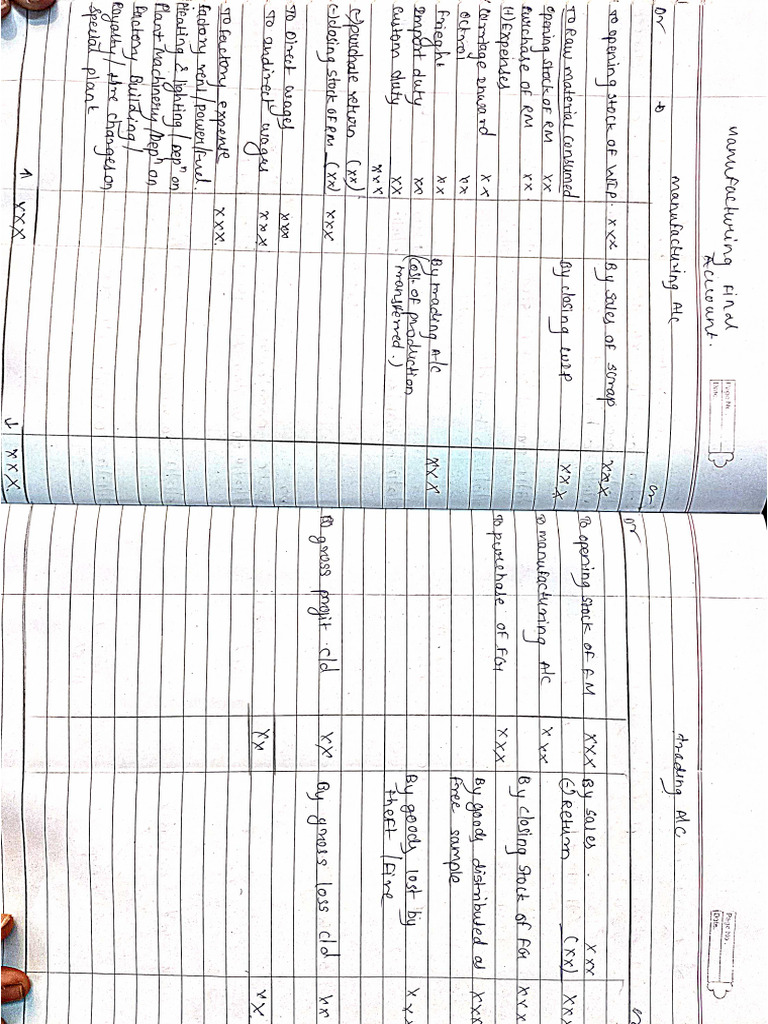 Manufacturing Final
Account.
Page No.
Date
Manufacturing A/c
Dr
Cr
To opening stock of WIP. xxx
By sales of scrap xxx
To Raw material consumed
By closing WIP xxx
opening stock of RM xx
purchase of RM xx
(+) Expenses
Carriage inward xx
octroi xx
Frieght xx
By trading A/c xxx
import duty xx
(Cost of production
custom duty xx
transferred.)
xxx
(-) purchase return (xx)
(-) closing stock of RM (xx) xxx
To Direct wages xxx
To indirect wages xxx
To factory expense xxx.
factory rent/power/fuel.
Heating & lighting / Depn on
Plant Machinery / Depn on
Factory Building /
Royalty / Hire charges on
special plant
xxx
xxx.
Page No.
Date
trading A/c
Dr
To opening stock of FM xxx
By sales xxx
(-) Return (xx) xxx
To manufacturing A/c xxx
To purchase of FG xxx
By closing stock of FG xxx
By goods distributed as xxx
free sample
By goods lost by xxx
theft / Fire
To gross profit c/d xx
By gross loss c/d xx
xx
xx